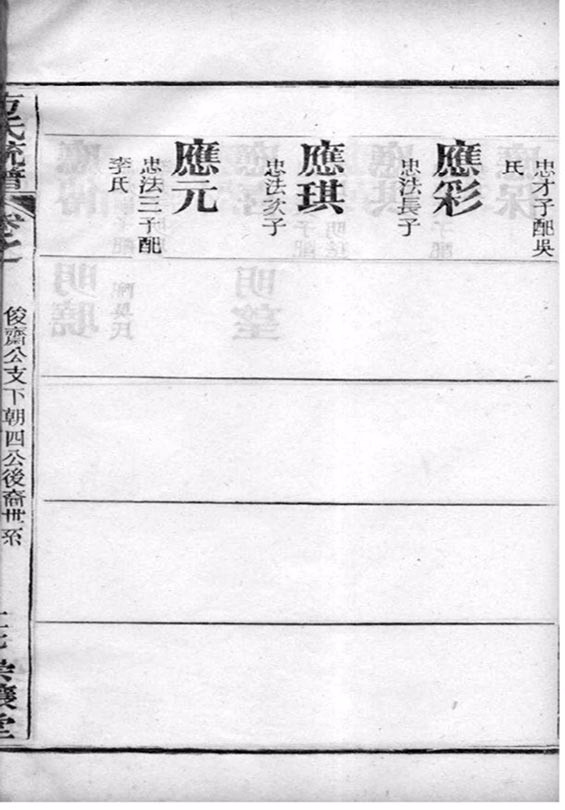 忠才子配吳
氏
應彩
忠法長子
應琪
忠法次子
應元
忠法三子配
李氏
方氏統譜
卷之
俊齋公支下朝四公後裔世系